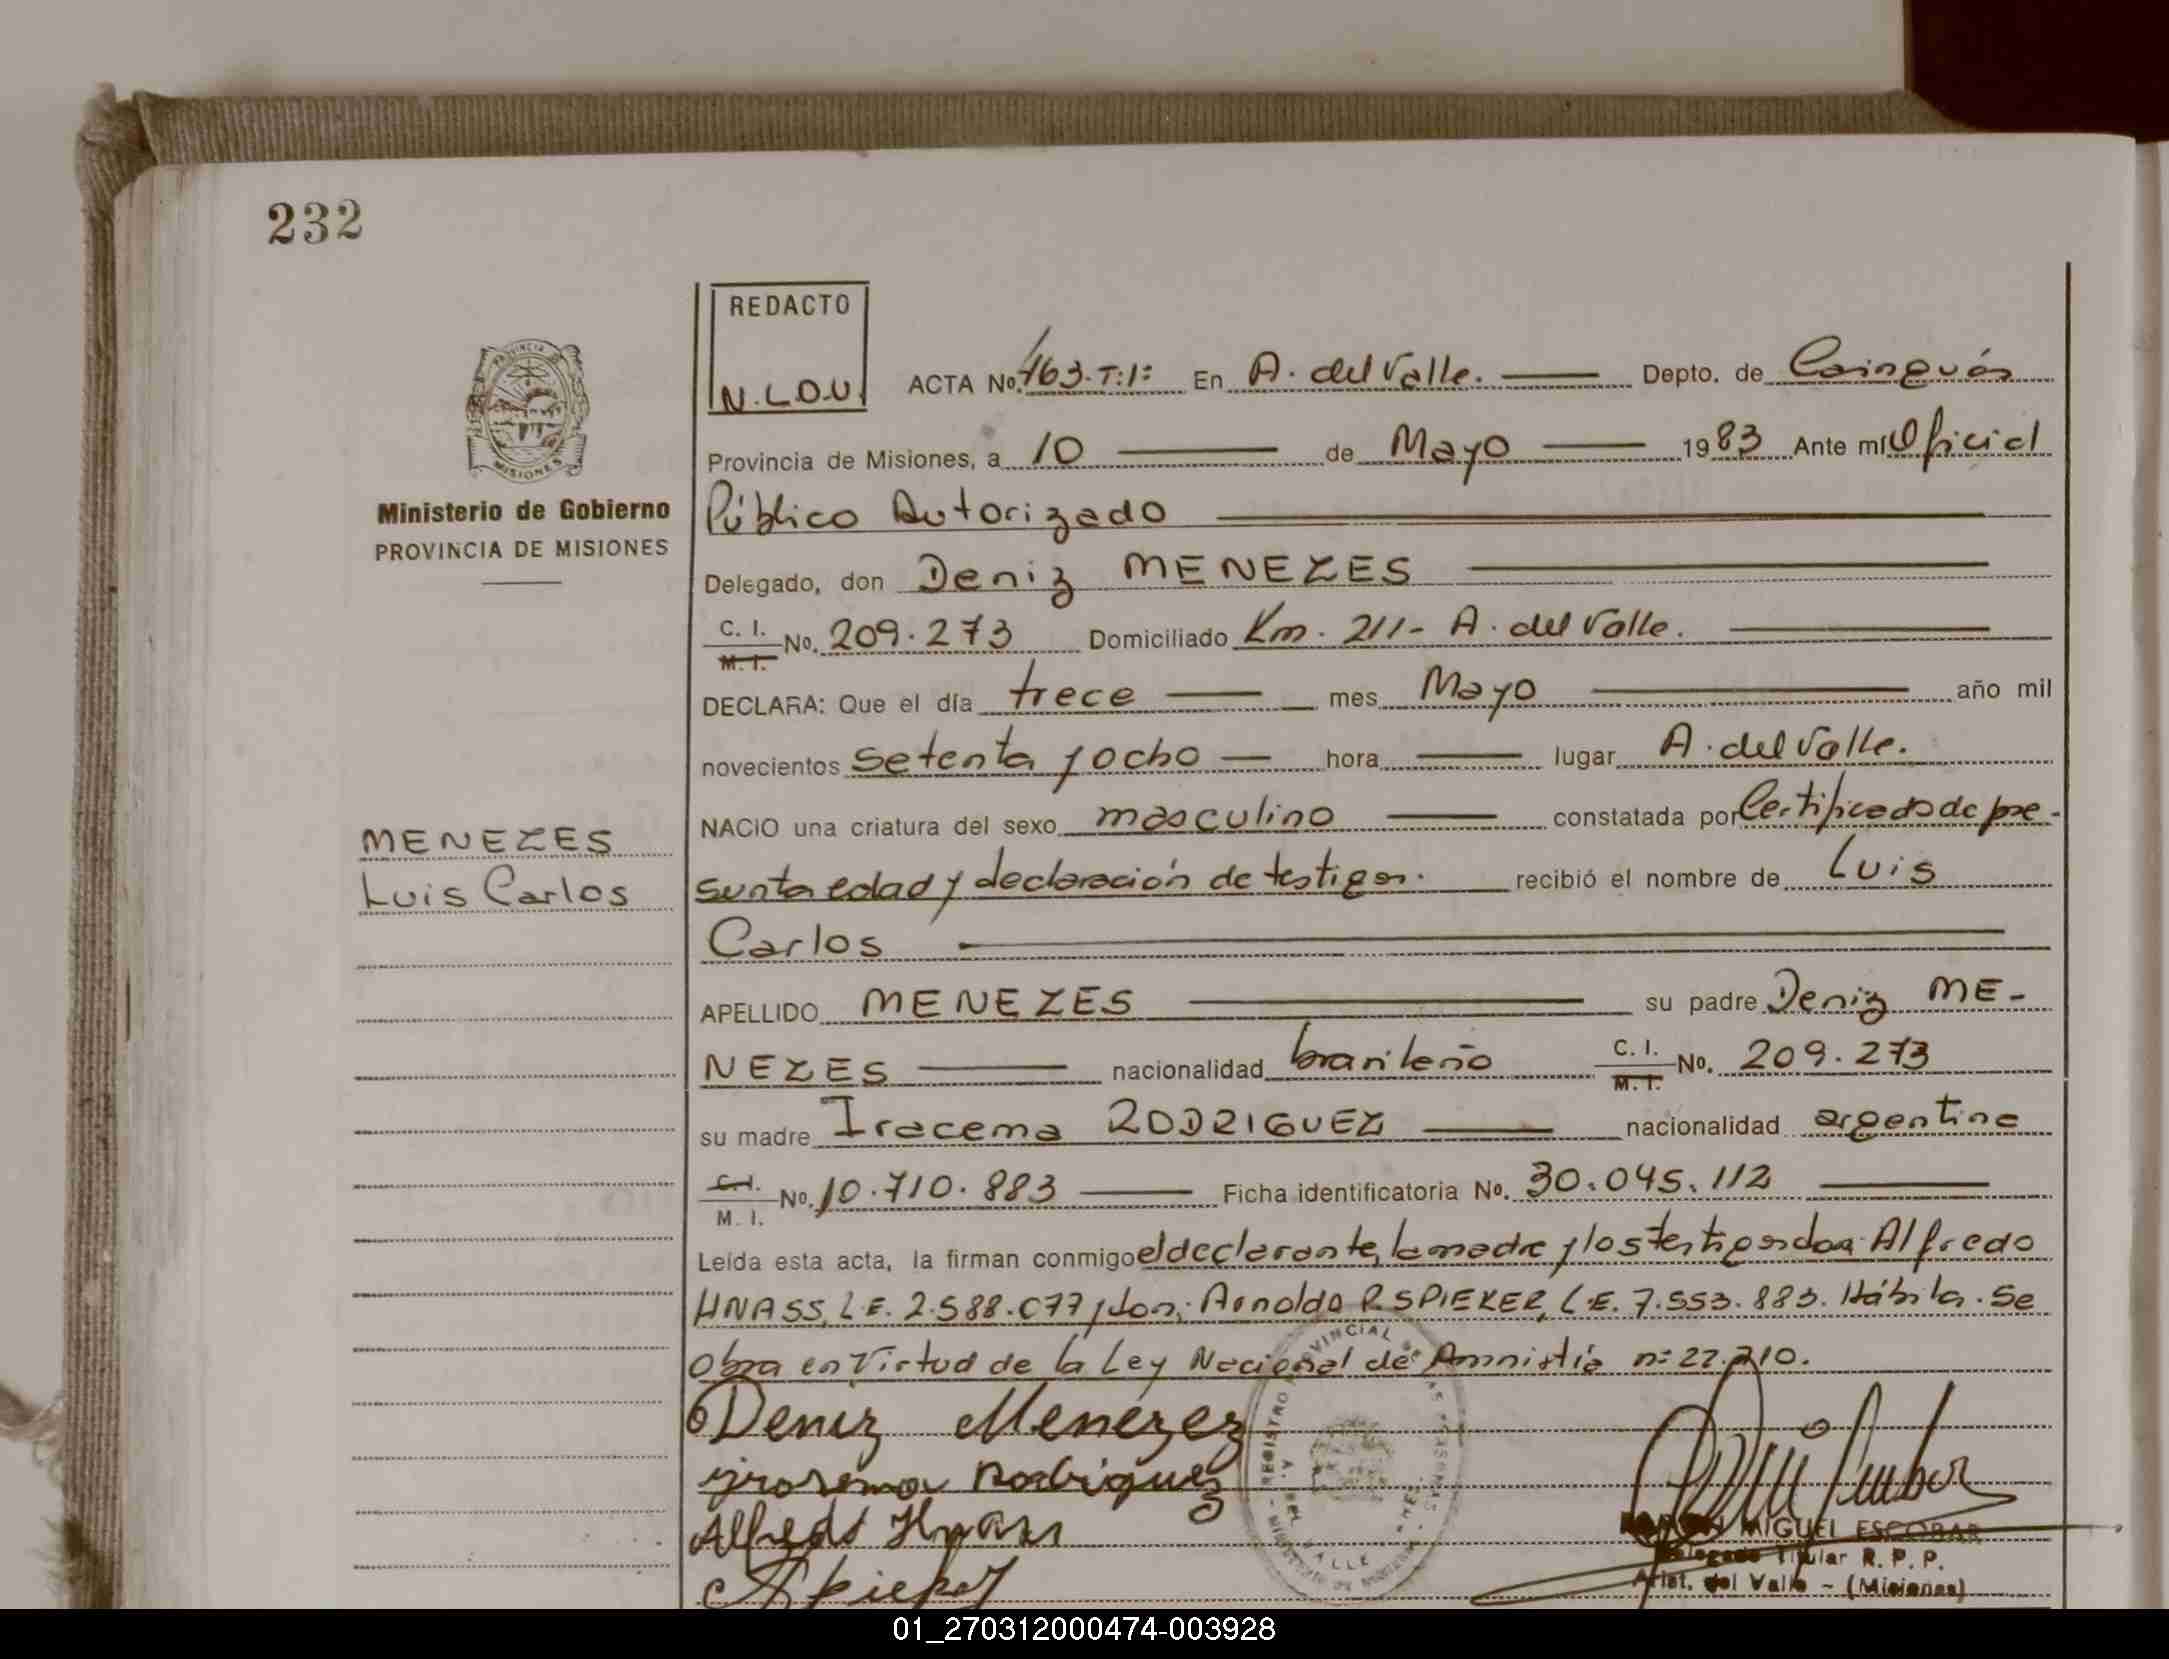 232
REDACTO
N.L.D.U.
PROVINCIA
MISIONES
Ministerio de Gobierno
PROVINCIA DE MISIONES
ACTA No. 463.T:1º En A. del Valle. Depto. de Cainguás
Provincia de Misiones, a 10 de Mayo 1983 Ante mí Oficial
Público Autorizado
Delegado, don Deniz MENEZES
C. I. M. I. No. 209.273 Domiciliado Km. 211- A. del Valle.
DECLARA: Que el día trece mes Mayo año mil
novecientos setenta y ocho hora lugar A. del Valle.
NACIO una criatura del sexo masculino constatada por Certificado de pre-
MENEZES
Luis Carlos
sunta edad y declaración de testigos. recibió el nombre de Luis
Carlos
APELLIDO MENEZES su padre Deniz ME-
NEZES nacionalidad brasileño C. I. M. I. No. 209.273
su madre Iracema RODRIGUEZ nacionalidad argentina
C. I. M. I. No. 10.710.883 Ficha identificatoria No. 30.045.112
Leída esta acta, la firman conmigo el declarante, la madre y los testigos don: Alfredo
HNASS, L.E. 2.588.077 y don: Arnoldo R SPIEKER, L.E. 7.553.883. Hábiles. Se
Obra en Virtud de la Ley Nacional de Amnistía nº 22.210.
Deniz Menezez
Rodriguez
Alfredo Hnass
REGISTRO PROVINCIAL DE LAS PERSONAS
A. DEL VALLE
RAMON MIGUEL ESCOBAR
Delegado Titular R. P. P.
Arist. del Valle - (Misiones)
01_270312000474-003928